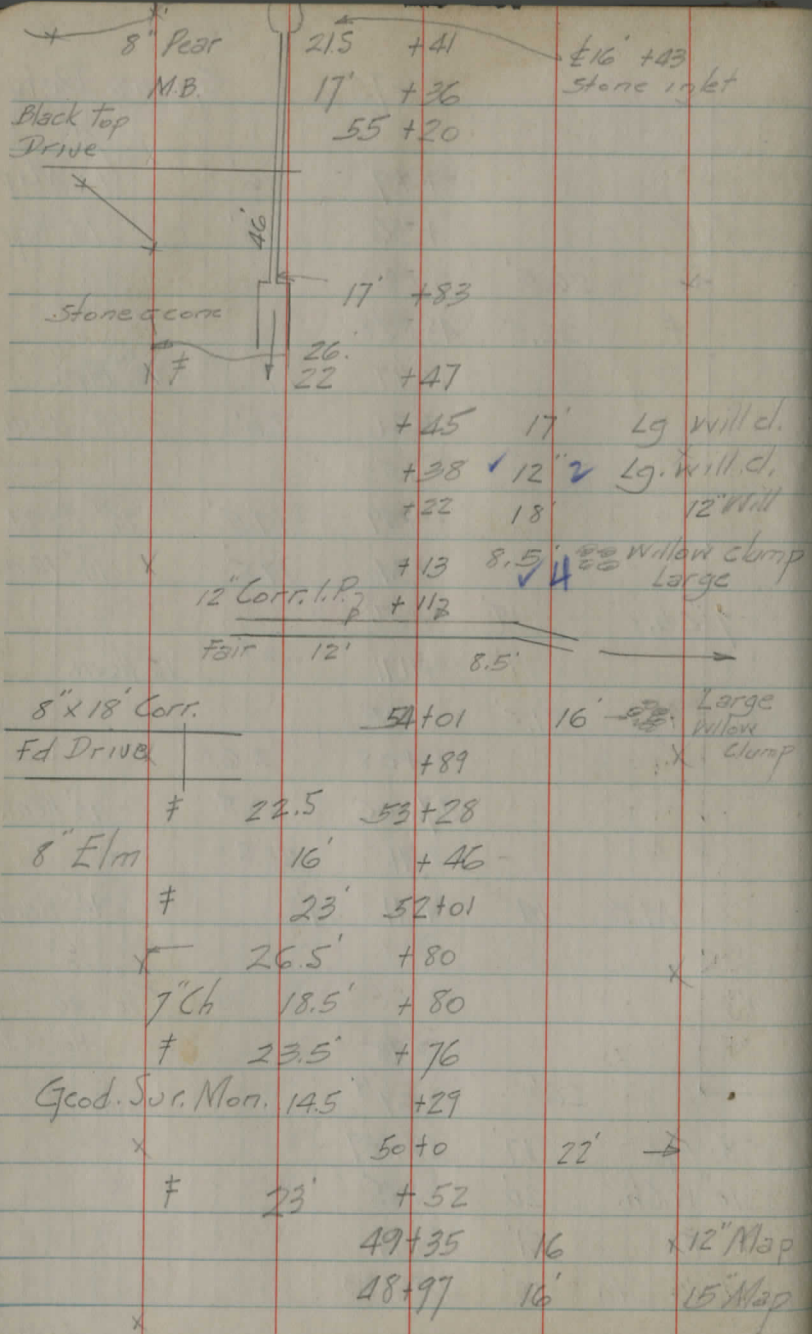 8" Pear 21.5 +41 ⅊16' +43
M.B. 17' +36 Stone inlet
Black Top 55 +20
Drive
46'
17' +83
Stone & conc
26.
ŧ 22 +47
+45 17' Lg Will cl.
+38 ✓ 12" 2 Lg. Will cl.
+22 18' 12" Will
+13 8.5' ✓ 4 Willow clump
Large
12" Corr. I.P. +112
Fair 12' 8.5'
8" x 18' Corr. 54+01 16' Large
Willow
Clump
Fd Drive +89
ŧ 22.5 53+28
8" Elm 16' +46
ŧ 23' 52+01
26.5' +80
7" Ch 18.5' +80
ŧ 23.5' +76
Geod. Sur. Mon. 14.5 +29
50+0 22'
ŧ 23' +52
49+35 16 12" Map
48+97 16' 15" Map